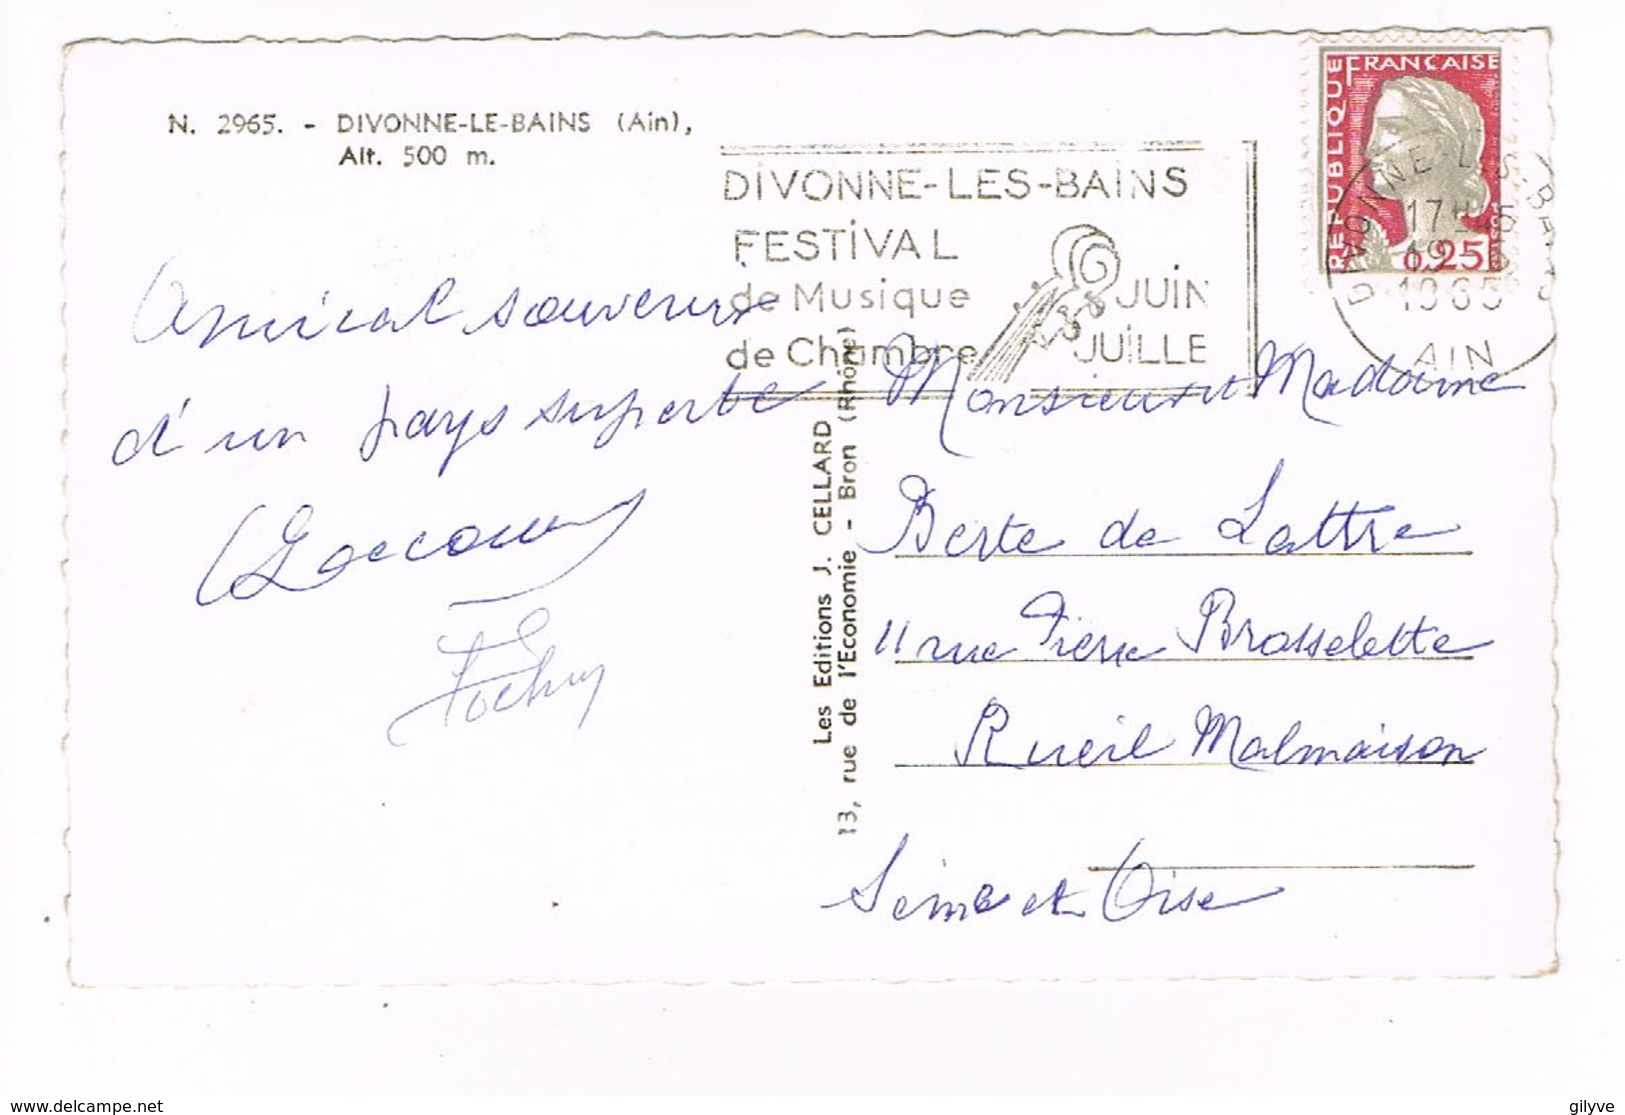 N. 2965. - DIVONNE-LE-BAINS (Ain),
Alt. 500 m.
DIVONNE-LES-BAINS
FESTIVAL
de Musique
de Chambre
JUIN
JUILLE
RÉPUBLIQUE FRANÇAISE
0,25
DIVONNE-LES-BAINS
17H
19
1965
AIN
Amical souvenir
d'un pays superbe
Les Editions J. CELLARD
13, rue de l'Economie - Bron (Rhône)
Monsieur et Madame
Berte de Lattre
11 rue Pierre Brosselette
Rueil Malmaison
Seine et Oise
www.delcampe.net
gilyve